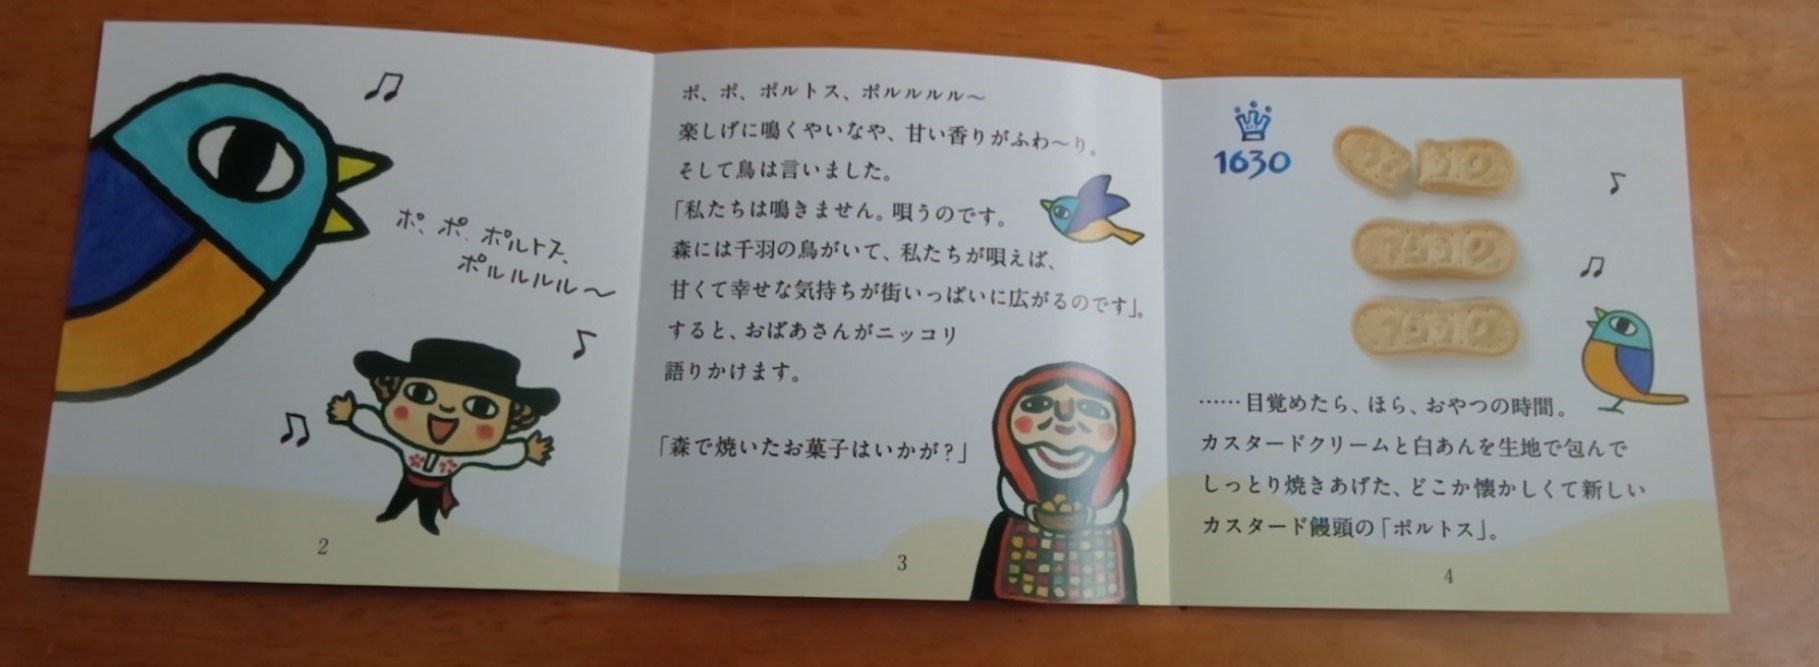 ポ、ポ、ポルトス、
ポルルルル〜
2
ポ、ポ、ポルトス、ポルルルル〜
楽しげに鳴くやいなや、甘い香りがふわ〜り。
そして鳥は言いました。
「私たちは鳴きません。唄うのです。
森には千羽の鳥がいて、私たちが唄えば、
甘くて幸せな気持ちが街いっぱいに広がるのです」。
すると、おばあさんがニッコリ
語りかけます。
「森で焼いたお菓子はいかが？」
3
1630
1630
1630
……目覚めたら、ほら、おやつの時間。
カスタードクリームと白あんを生地で包んで
しっとり焼きあげた、どこか懐かしくて新しい
カスタード饅頭の「ポルトス」。
4